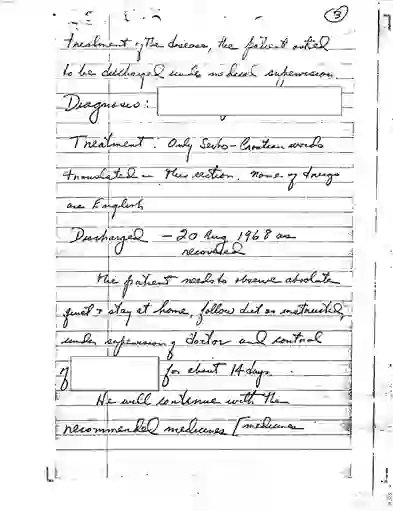 3
treatment of the disease, the patient asked
to be discharged under medical supervision
Diagnosis:
Treatment: Only Serbo-Croatian words
translated in this section. None of drugs
are English
Discharged - 20 Aug 1968 as
recovered
The patient needs to observe absolute
quiet & stay at home, follow diet as instructed,
under supervision of doctor and control
of for about 14 days.
He will continue with the
recommended medicines [medicines